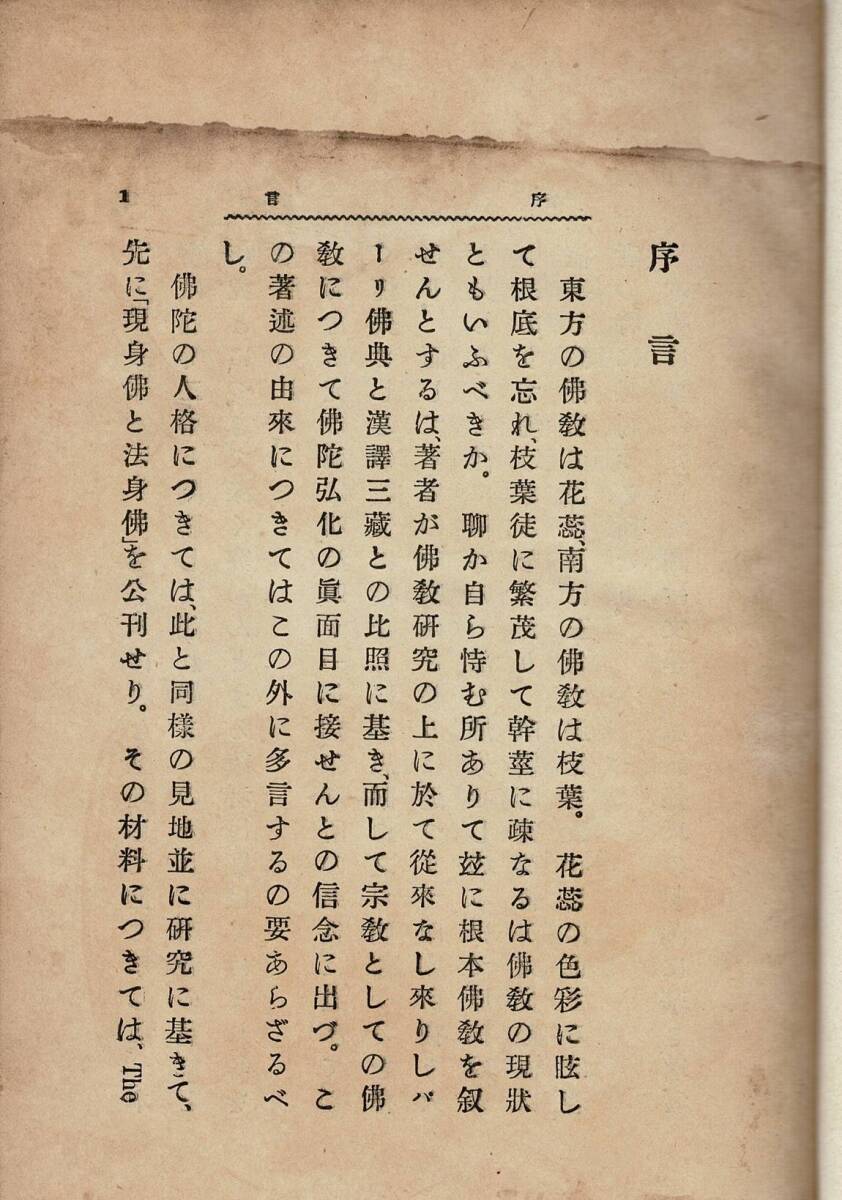 序言
東方の佛敎は花蕊、南方の佛敎は枝葉。花蕊の色彩に眩し
て根底を忘れ、枝葉徒に繁茂して幹莖に疎なるは佛敎の現狀
ともいふべきか。聊か自ら恃む所ありて玆に根本佛敎を叙
せんとするは、著者が佛敎硏究の上に於て從來なし來りしパ
ーリ佛典と漢譯三藏との比照に基き、而して宗敎としての佛
敎につきて佛陀弘化の眞面目に接せんとの信念に出づ。こ
の著述の由來につきてはこの外に多言するの要あらざるべ
し。
佛陀の人格につきては、此と同樣の見地並に硏究に基きて、
先に「現身佛と法身佛」を公刊せり。その材料につきては、The
序言
1